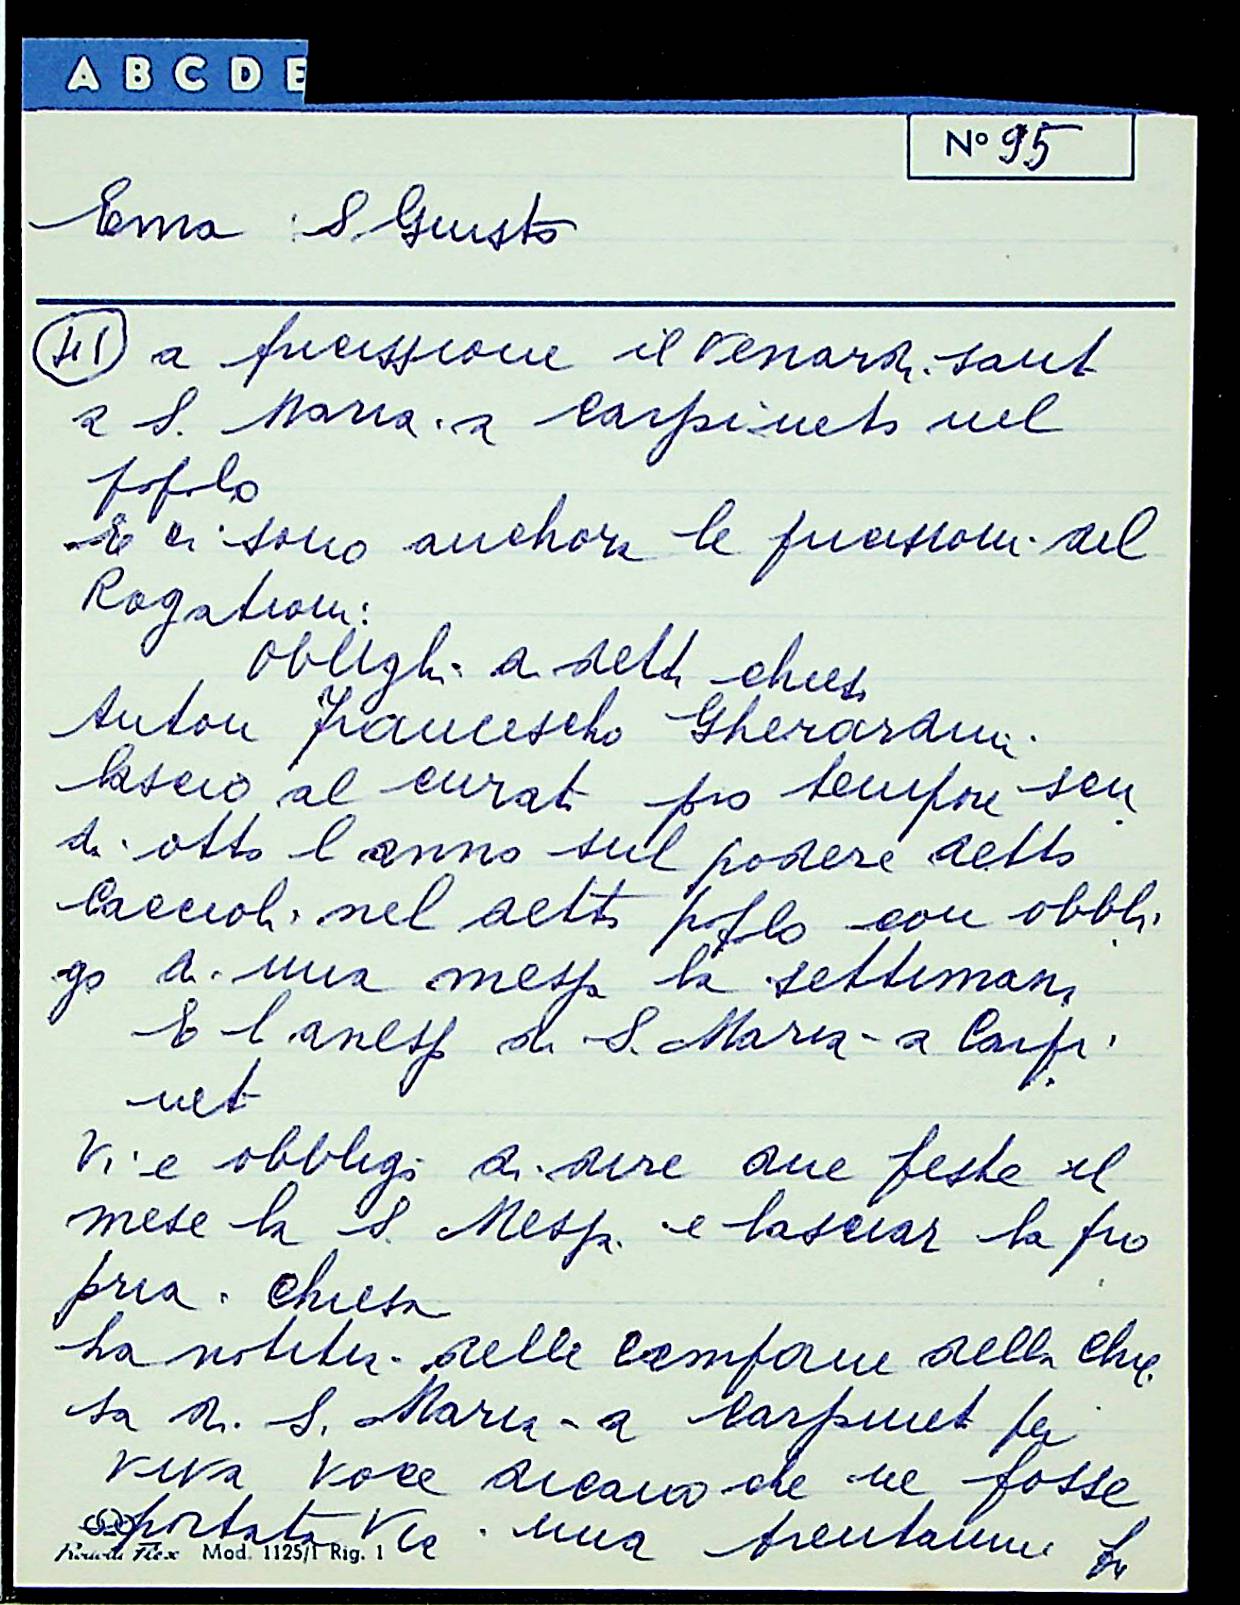 A B C D E
Nº 95
Ema : S. Giusto
a processione il Venardi sant
a S. Maria a Carpineto nel
popolo
E ci sono anchora le processioni del
Rogationi:
Oblighi di dett chiesa
Anton Francescho Gherardini
lascio al curato pro tempore scu
di otto l anno sul podere detto
Caccioli nel detto popolo con obbli
go di una messa la settimana
E l anessa di S. Maria a Carpi
neto
Vi e obbligo di dire due feste il
mese la S. Messa e lasciar la pro
pria chiesa
ha notitia delle campane della Chie
sa di S. Maria a Carpinet per
viva voce dicano che ne fosse
portata via una trentanni fu
Mod. 1125/1 Rig. 1